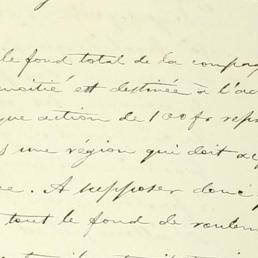 le fond total de la compag
moitié est destinée à l'ac
que action de 100 fr repr
s une région qui doit ac
ce. A supposer donc
tout le fond de roulem